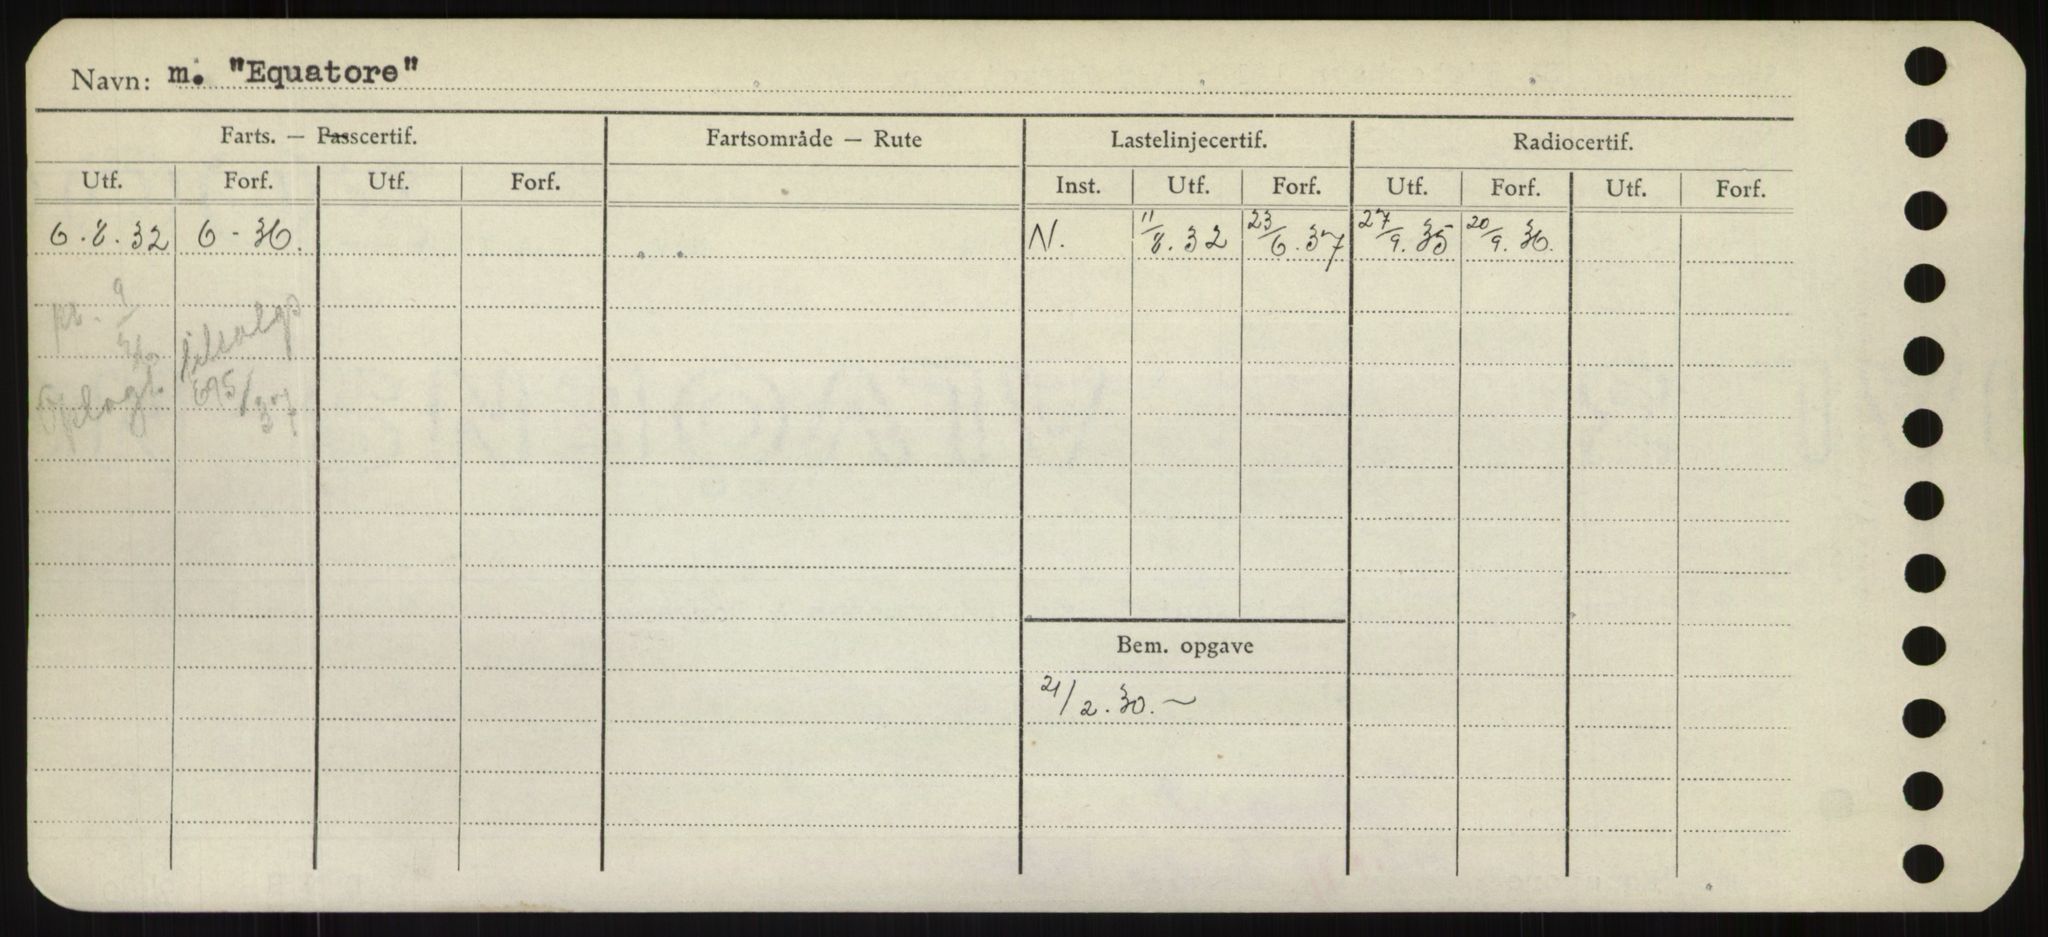 Navn: m. "Equatore"
Farts. — Passcertif. Fartsområde — Rute Lastelinjecertif. Radiocertif.
Utf. Forf. Utf. Forf. Inst. Utf. Forf. Utf. Forf. Utf. Forf.
6.8.32 6-36. N. 11/8.32 23/6.37 27/9.35 20/9.36.
Oplagt.
Bem. opgave
21/2.30.~